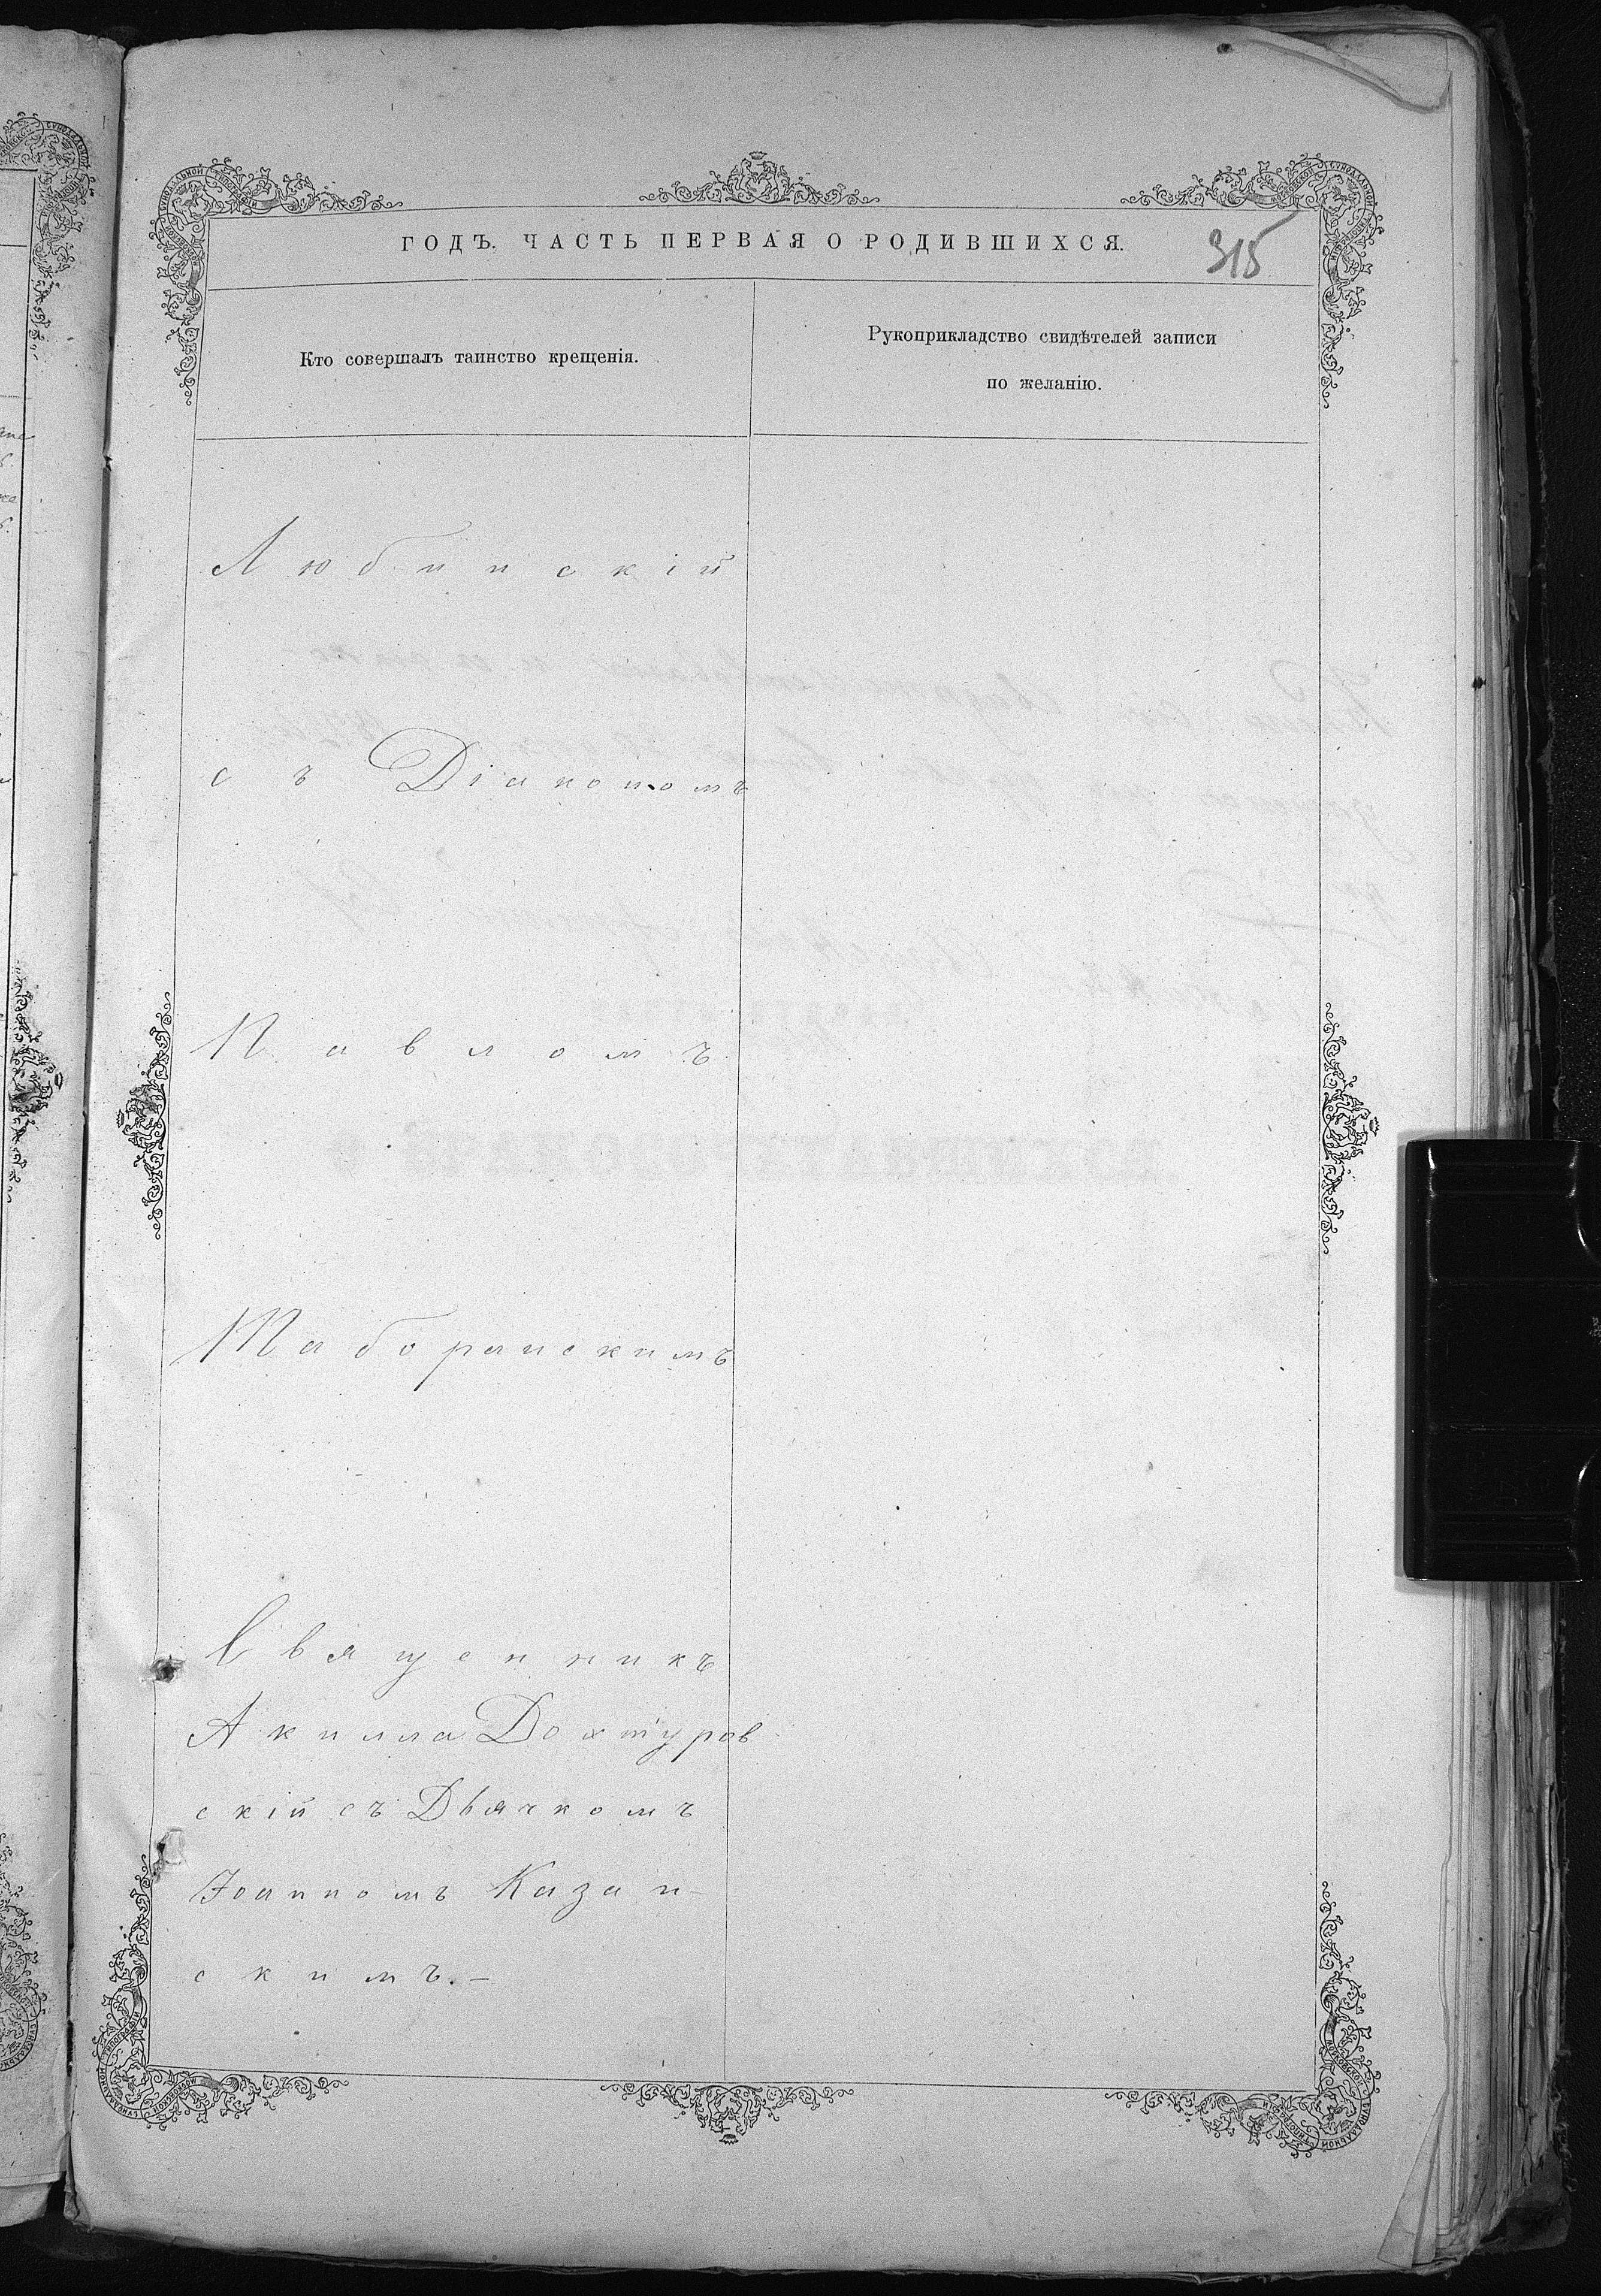 ГОДЪ. ЧАСТЬ ПЕРВАЯ О РОДИВШИХСЯ.
315
Кто совершалъ таинство крещенія.
Рукоприкладство свидѣтелей записи
по желанію.
Любинскій
съ Діакономъ
Павломъ
Таборанскимъ
Священникъ
Акилла Дохтуров
скій съ Дьячкомъ
Іоанномъ Казан-
скимъ.-